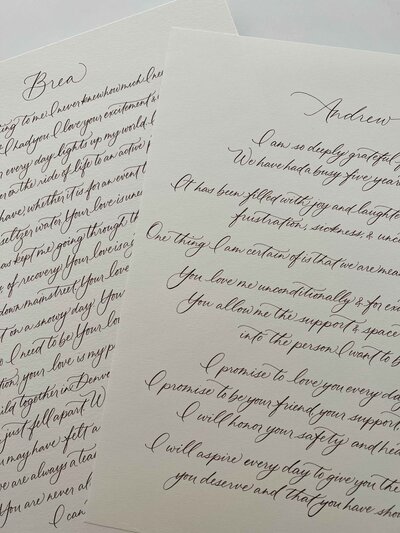 Brea
ing to me I never knew how much I nee
I had you. I love your excitement &
every day lights up my world. I
er on the ride of life to an active p
have, whether it is for an event
seltzer water. Your love is unen
as kept me going through th
of recovery. Your love is a
down mainstreet. Your love
t on a snowy day. You
o I need to be. Your lo
tion, your love is my p
ild together in Denve
just fell apart. W
you may have felt a
we are always a tea
You are never al
I can
Andrew
I am so deeply grateful f
We have had a busy five year
It has been filled with joy and laughte
frustration, sickness, & unc
One thing I am certain of is that we are mean
You love me unconditionally & for ex
You allow me the support & space
into the person I want to b
I promise to love you every day
I promise to be your friend your support
I will honor your safety and hea
I will aspire every day to give you the
you deserve and that you have sho